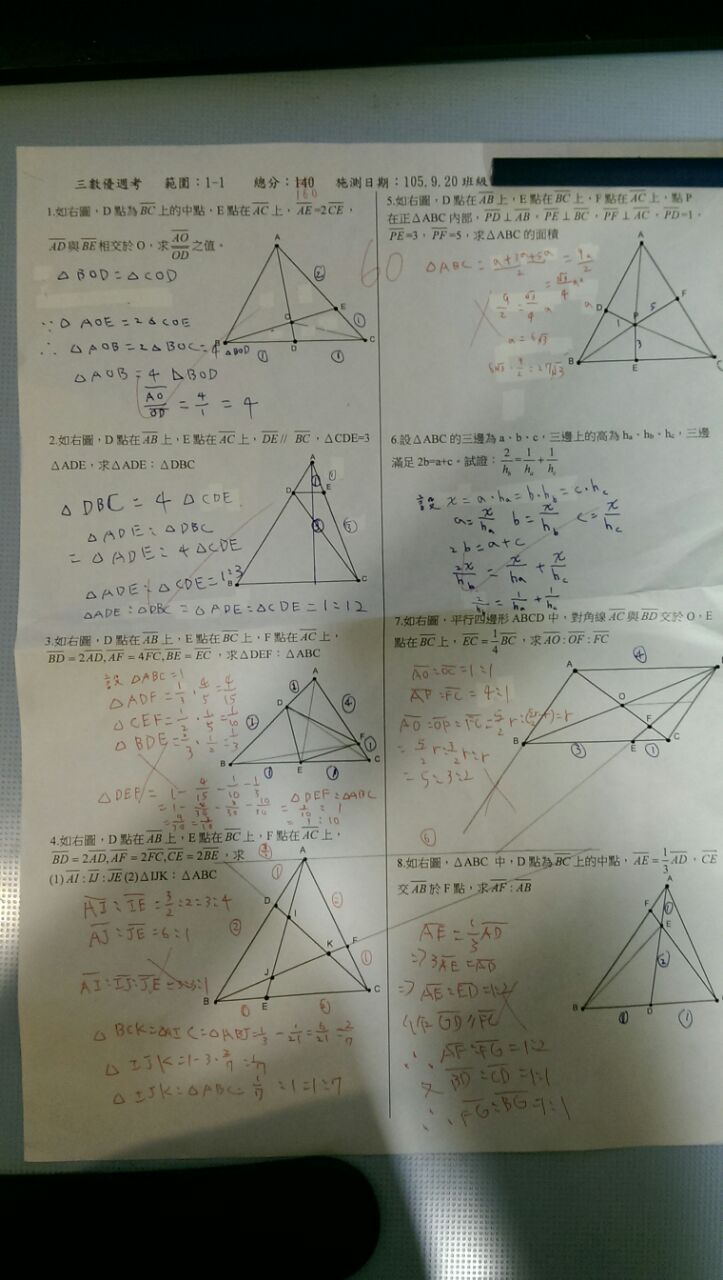 三數優週考 範圍：1-1 總分：140 施測日期：105.9.20 班級
160
1.如右圖，D 點為BC上的中點，E 點在AC上，AE=2CE，
AD與BE相交於 O，求AO/OD之值。
△BOD=△COD
∵△AOE=2△COE
∴△AOB=2△BOC=4△BOD
△AOB=4△BOD
AO/OD=4/1=4
A
E
O
B
D
C
②
①
①
①
2.如右圖，D 點在AB上，E 點在AC上，DE// BC，△CDE=3
△ADE，求△ADE：△DBC
△DBC=4△CDE
△ADE：△DBC
=△ADE：4△CDE
△ADE：△CDE=1：3
△ADE：△DBC=△ADE：△CDE=1：12
A
D
E
B
C
3.如右圖，D 點在AB上，E 點在BC上，F 點在AC上，
BD=2AD, AF=4FC, BE=EC，求△DEF：△ABC
設△ABC=1
△ADF=1/3·4/5=4/15
△CEF=1/2·1/5=1/10
△BDE=2/3·1/2=1/3
△DEF=1-4/15-1/10-1/3
△DEF：△ABC
=1：10
A
D
F
B
E
C
4.如右圖，D 點在AB上，E 點在BC上，F 點在AC上，
BD=2AD, AF=2FC, CE=2BE，求
(1) AI：IJ：JE (2)△IJK：△ABC
AI：IE=3/2：2=3：4
AJ：JE=6：1
AI：IJ：JE=3：3：1
△BCK=△AIC=△ABJ=1/3-1/21=6/21=2/7
△IJK=1-3·2/7=1/7
△IJK：△ABC=1/7：1=1：7
A
D
I
K
F
J
B
E
C
5.如右圖，D 點在AB上，E 點在BC上，F 點在AC上，點 P
在正△ABC 內部，PD⊥AB，PE⊥BC，PF⊥AC，PD=1，
PE=3，PF=5，求△ABC 的面積
60
△ABC=(a+3a+5a)/2=9a/2
=√3/4a²
9/2=√3/4a
a=6√3
6√3·9/2=27√3
A
D
F
P
B
E
C
1
5
3
a
6.設△ABC 的三邊為 a、b、c，三邊上的高為 ha、hb、hc，三邊
滿足 2b=a+c。試證：2/hb=1/ha+1/hc
設 x=a·ha=b·hb=c·hc
a=x/ha b=x/hb c=x/hc
2b=a+c
2x/hb=x/ha+x/hc
2/hb=1/ha+1/hc
7.如右圖，平行四邊形 ABCD 中，對角線AC與BD交於 O，E
點在BC上，EC=1/4BC，求AO：OF：FC
AO：OC=1：1
AF：FC=4：1
AO：OF：FC=5/2r：(5/2r-r)=r
=5/2r：3/2r：r
=5：3：2
A
O
F
B
E
C
④
③
①
⑥
8.如右圖，△ABC 中，D 點為BC上的中點，AE=1/3AD，CE
交AB於 F 點，求AF：AB
AE=1/3AD
⇒3AE=AD
⇒AE：ED=1：2
作GD//FC
∴AF：FG=1：2
又BD：CD=1：1
∴FG：BG=1：1
A
F
E
B
D
C